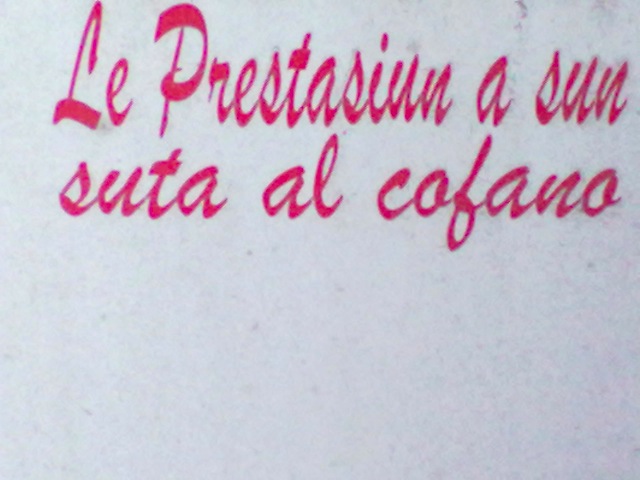 Le Prestasiun a sun
suta al cofano